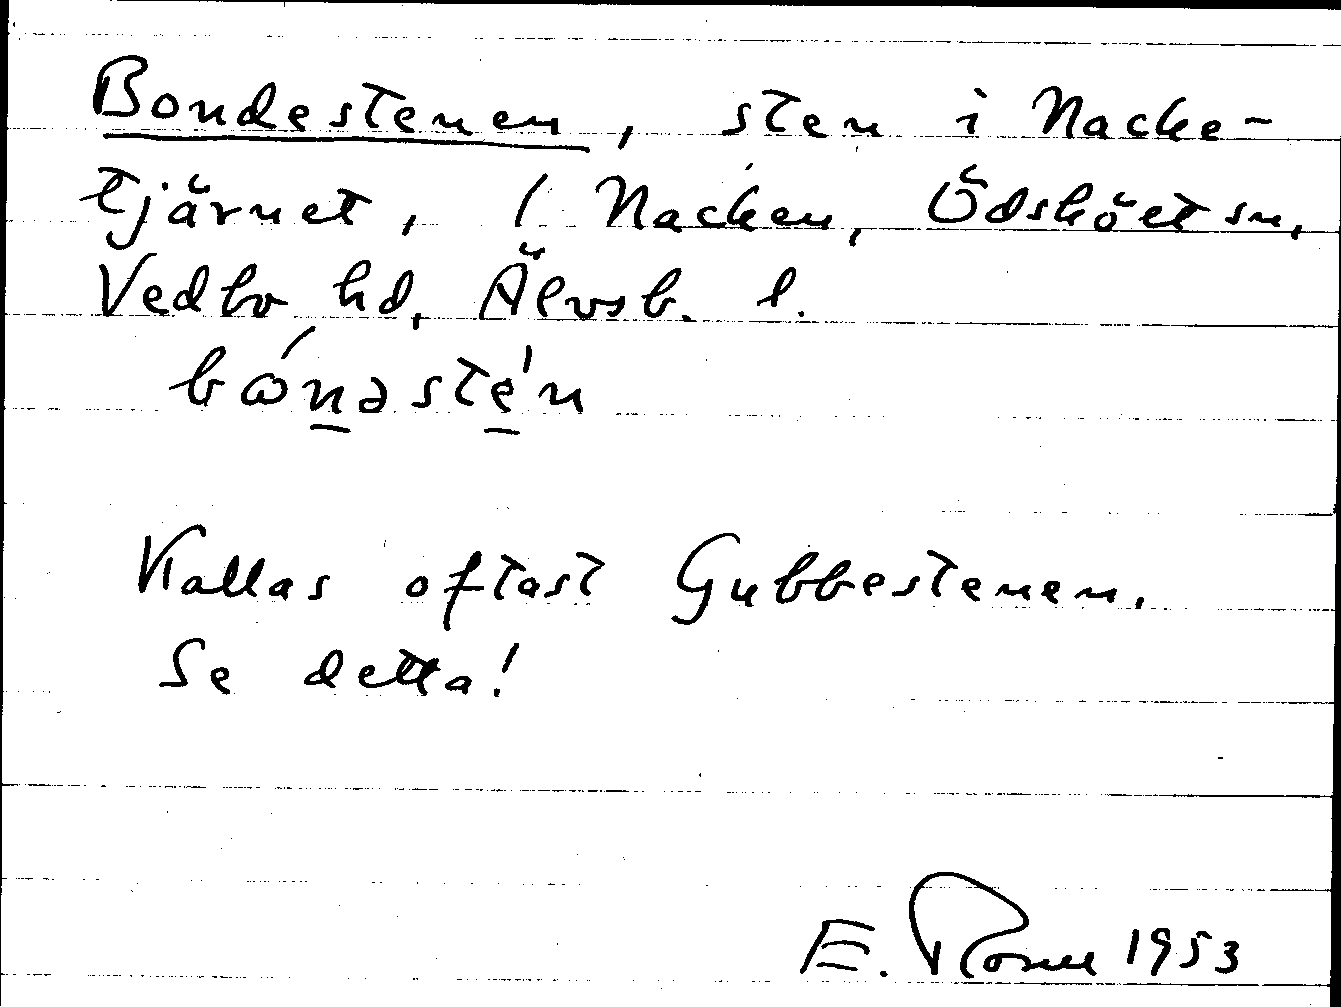 Bondestenen, sten i Nacke-
tjärnet, / Nacken, Ödsköet sn,
Vedbo hd, Älvsb. l.
bónəste̍n
Kallas oftast Gubbestenen.
Se detta!
E. 1953